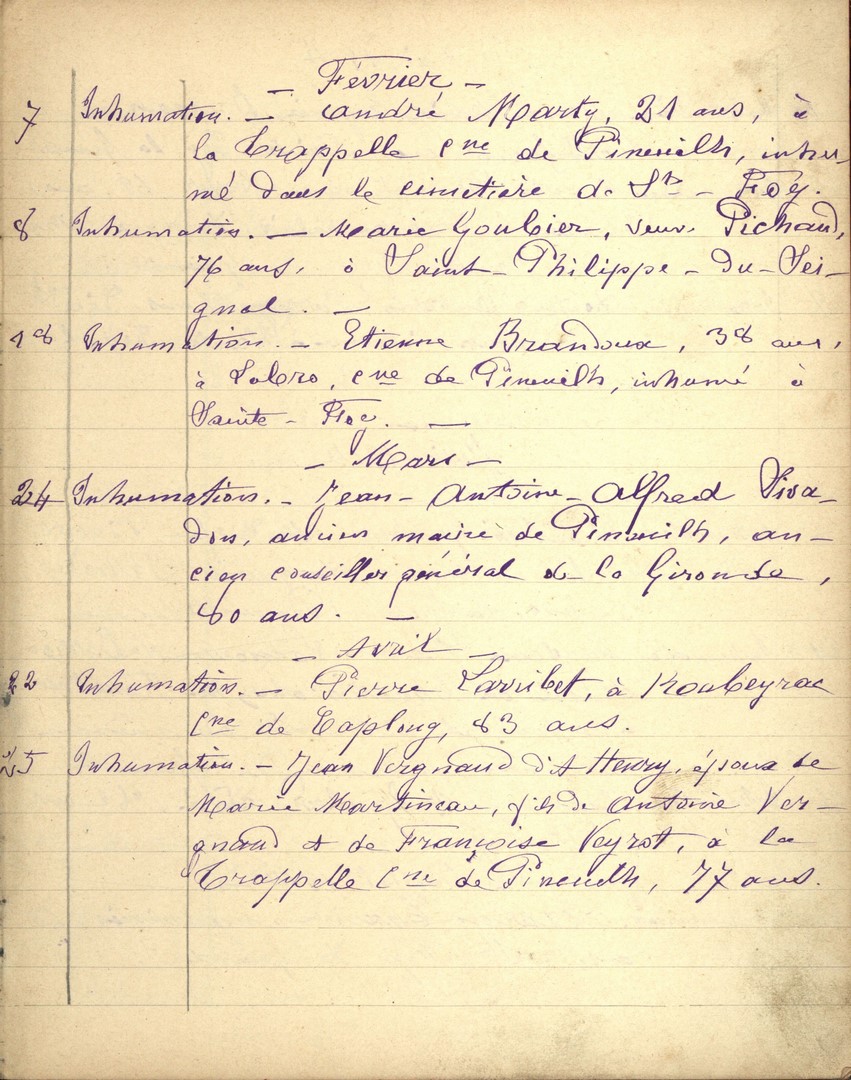 — Février —
7 Inhumation. — André Marty, 21 ans, à
la Trappelle Cne de Pineuilh, inhu-
mé dans le cimetière de Ste - Foy.
8 Inhumation. — Marie Goubier, veuve Pichaud,
76 ans, à Saint-Philippe-du-Sei-
gnal. —
18 Inhumation. — Etienne Brandoux, 38 ans,
à , Cne de Pineuilh, inhumé à
Sainte - Foy. —
— Mars —
24 Inhumation. — Jean-Antoine-Alfred Siva-
don, ancien maire de Pineuilh, an-
cien conseiller général de la Gironde,
80 ans. —
— Avril —
22 Inhumation. — Pierre Larribet, à Roubeyrac
Cne de Caplong, 83 ans.
25 Inhumation. — Jean Vergnaud époux de
Marie Martineau, fils de Antoine Ver-
gnaud et de Françoise Veyrot, à la
Trappelle Cne de Pineuilh, 77 ans.